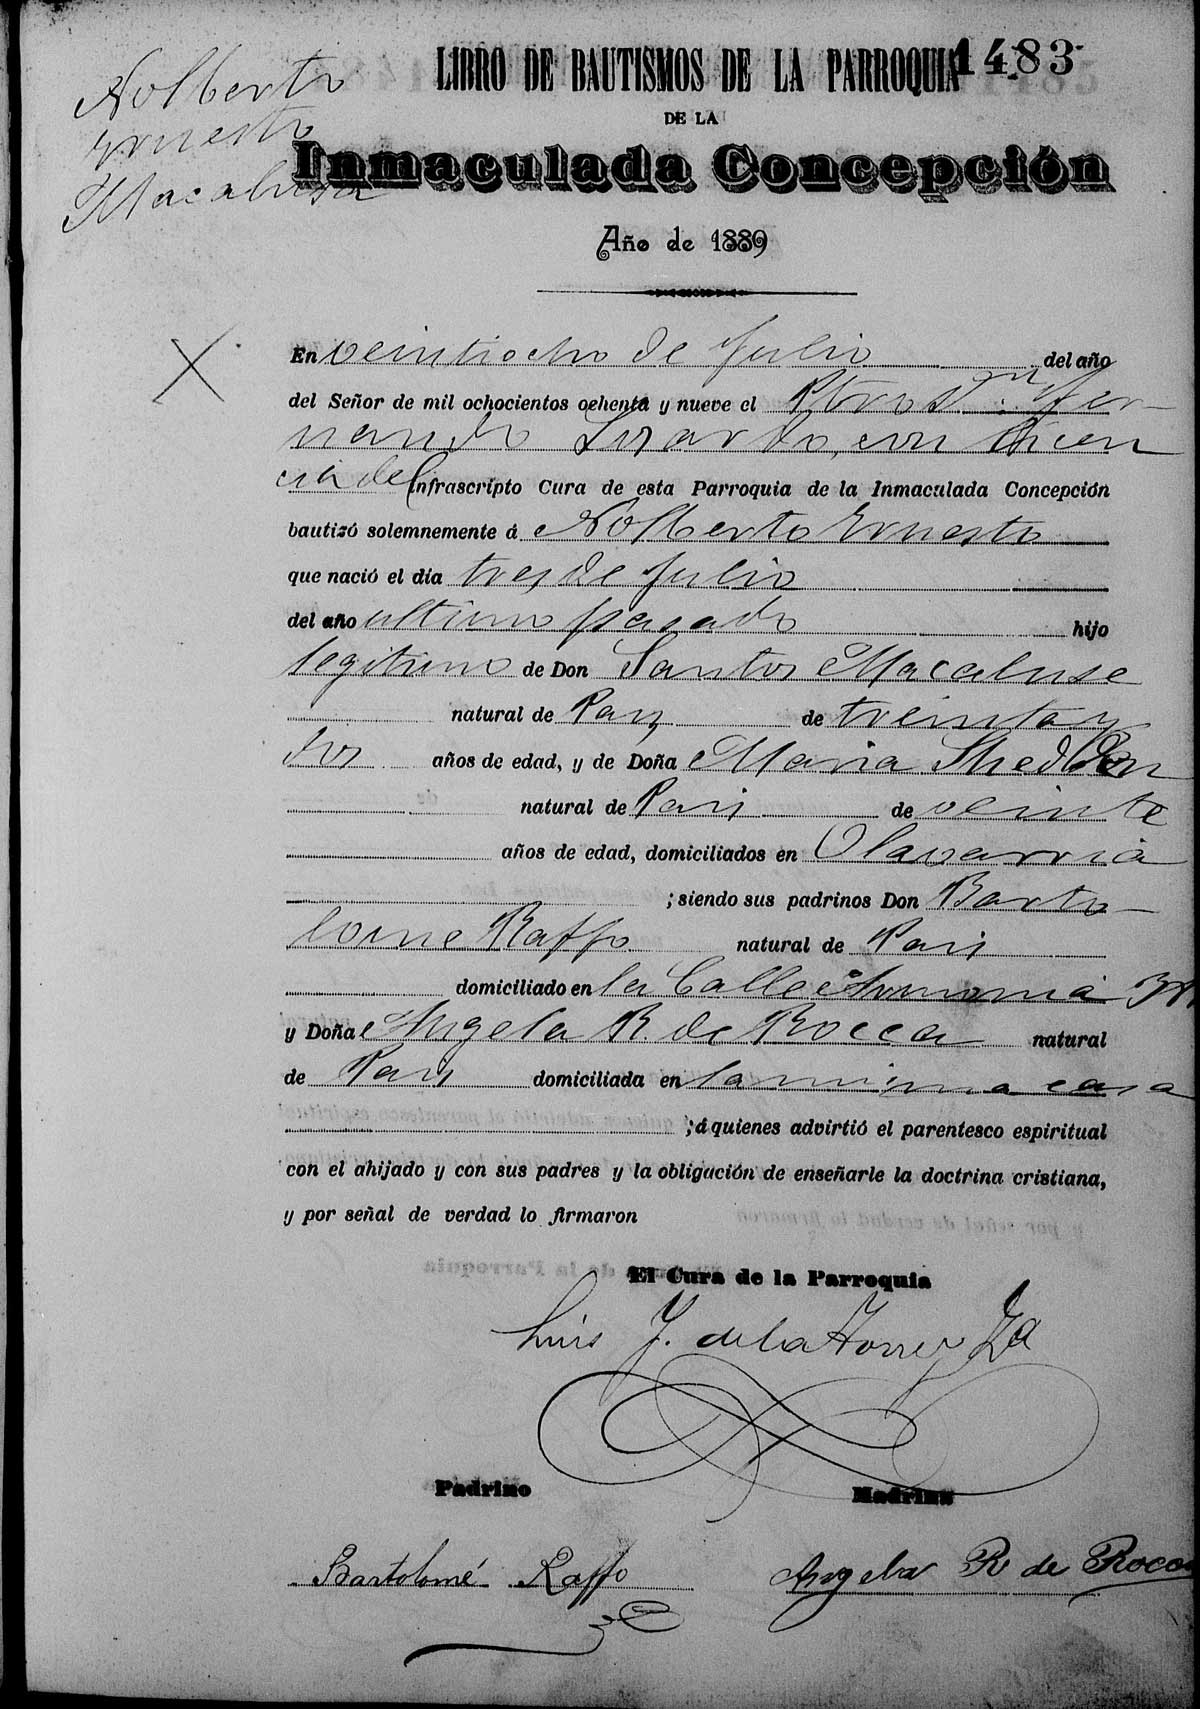 1483
LIBRO DE BAUTISMOS DE LA PARROQUIA
DE LA
Inmaculada Concepción
Año de 1889
Nolberto
Ernesto
Macalusa
En veintiocho de Julio del año
del Señor de mil ochocientos ochenta y nueve el Pbro Dn Fer-
nando Lizardo, con licen
cia del infrascripto Cura de esta Parroquia de la Inmaculada Concepción
bautizó solemnemente á Nolberto Ernesto
que nació el día tres de Julio
del año ultimo pasado hijo
legitimo de Don Santos Macaluse
natural de Pais de treinta y
dos años de edad, y de Doña Maria
natural de Pais de veinte
años de edad, domiciliados en Olavarria
; siendo sus padrinos Don Barto-
lome Raffo natural de Pais
domiciliado en la Calle
y Doña Angela R. de Rocca natural
de Pais domiciliada en la misma casa
; á quienes advirtió el parentesco espiritual
con el ahijado y con sus padres y la obligación de enseñarle la doctrina cristiana,
y por señal de verdad lo firmaron
El Cura de la Parroquia
Luis J. de la Torre y Za
Padrino Madrina
Bartolomé Raffo Angela R de Rocca